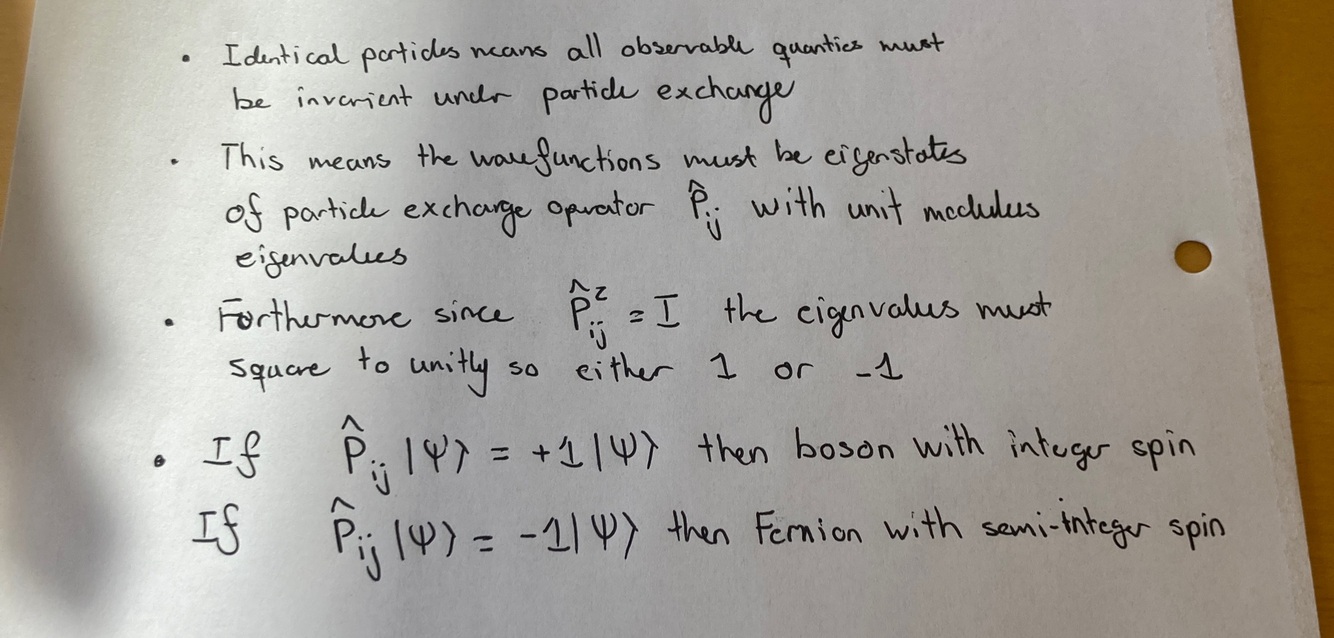 • Identical particles means all observable quantics must
be invarient under particle exchange
• This means the wavefunctions must be eigenstates
of particle exchange operator P̂ij with unit modulus
eigenvalues
• Forthermore since P̂²ij = I the eigenvalues must
square to unitly so either 1 or -1
• If P̂ij |Ψ⟩ = +1|Ψ⟩ then boson with integer spin
If P̂ij |Ψ⟩ = -1|Ψ⟩ then Fermion with semi-integer spin